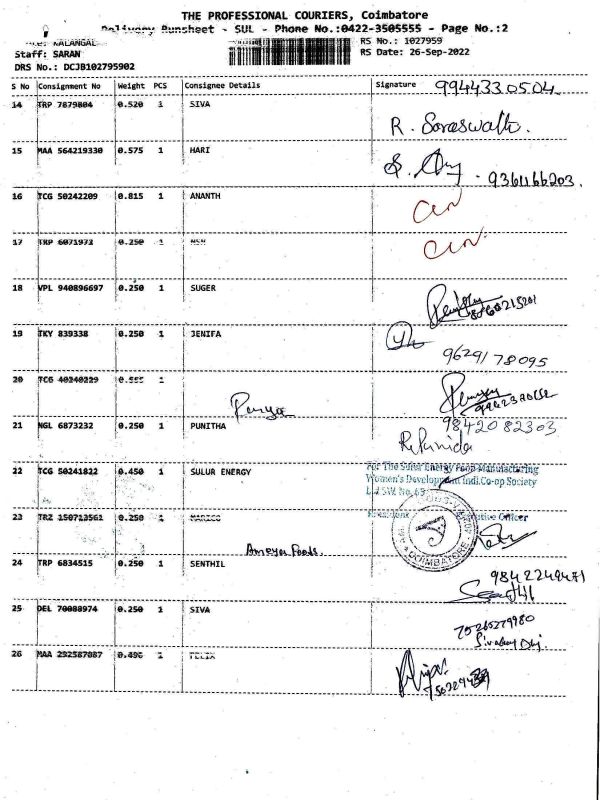 THE PROFESSIONAL COURIERS, Coimbatore
Delivery Runsheet - SUL - Phone No.:0422-3505555 - Page No.:2
KALANGAL
RS No.: 1027959
Staff: SARAN
RS Date: 26-Sep-2022
DRS No.: DCJB102795902
S No Consignment No Weight PCS Consignee Details Signature 9944330504
14 TRP 7879804 0.520 1 SIVA
R. Saraswathi
15 MAA 564219330 0.575 1 HARI
9361166203.
16 TCG 50242209 0.815 1 ANANTH
17 TRP 6071972 0.250 1 NSN
18 VPL 940896697 0.250 1 SUGER
19 TKY 839338 0.250 1 JENIFA
9629178095
20 TCG 40240229 0.555 1
21 NGL 6873232 0.250 1 PUNITHA 9842082303
22 TCG 50241822 0.450 1 SULUR ENERGY
For The Sulur Energy Food Manufacturing
Women's Development Indl.Co-op Society
President Executive Officer
23 TRZ 150713561 0.250 1 MARICO
COIMBATORE
24 TRP 6834515 0.250 1 SENTHIL
9842249471
25 DEL 70088974 0.250 1 SIVA
26 MAA 232587087 0.496 1 FELIX